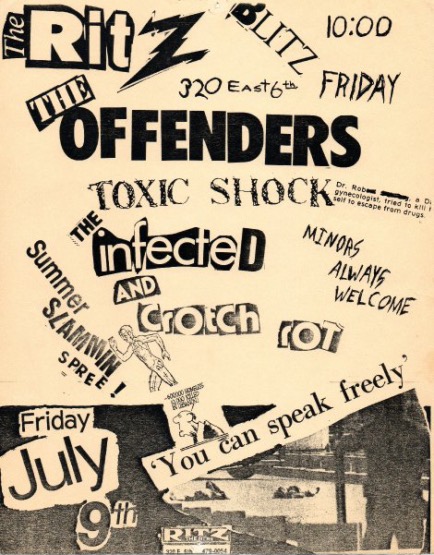 The Ritz
BLITZ
10:00
320 EAST 6th
FRIDAY
THE
OFFENDERS
TOXIC SHOCK
Dr. Rob
gynecologist, tried to kill
self to escape from drugs.
THE
infected
MINORS
ALWAYS
WELCOME
AND
Crotch rot
Summer
SLAMMIN
SPREE!
'You can speak freely'
Friday
July
9th
RITZ
320 E. 6th 479-0054